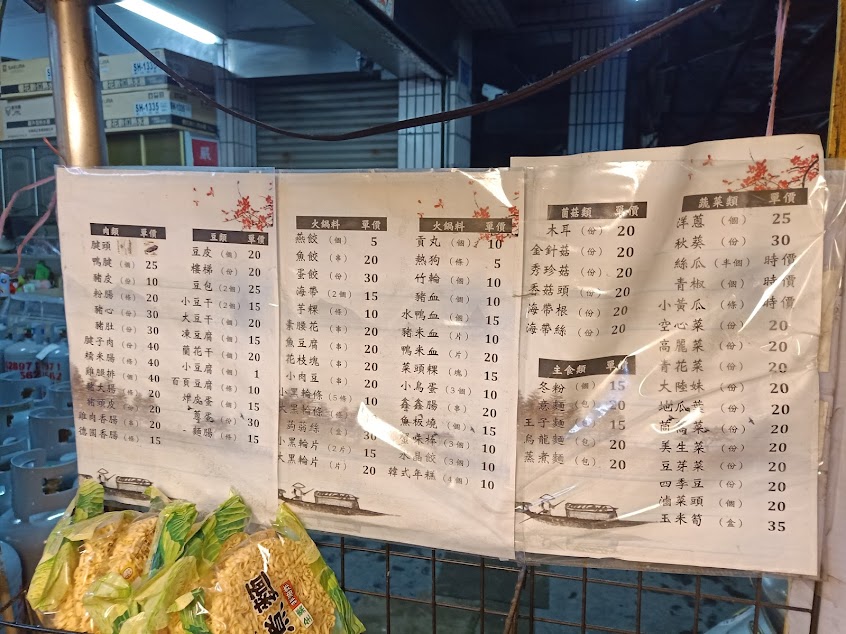 SH-1335
SH-1335
肉類 單價
腱頭
鴨腱（個） 25
豬皮（份） 10
粉腸（份） 20
豬心（份） 30
豬肚（份） 30
腱子肉（份） 40
糯米腸（份） 40
雞腿排（個） 40
大腸（份） 20
豬頭皮（份） 20
雞肉香腸（條） 15
德國香腸（條） 15
豆類 單價
豆皮（個） 20
樓梯（份） 20
豆包（2個） 25
小豆干（2個） 15
大豆干（個） 20
凍豆腐（個） 15
蘭花干（個） 20
小豆腐（個） 1
百頁豆腐（條） 10
蛋（個） 15
麵腸（條） 15
火鍋料 單價
燕餃（個） 5
魚餃（串） 20
蛋餃（份） 30
海帶（2個） 15
芋粿（條） 10
素腰花（串） 20
魚豆腐（串） 20
花枝塊（串） 20
小肉豆（串） 20
小黑輪條（5條） 10
大黑輪條
蒟蒻絲（盒） 30
小黑輪片（2片） 15
大黑輪片（片） 20
火鍋料 單價
貢丸（個） 10
熱狗（條） 5
竹輪（個） 10
豬血（個） 10
水鴨血（個） 15
豬米血（片） 20
鴨米血（片） 20
菜頭粿（塊） 15
小鳥蛋（3個） 10
鑫鑫腸（串） 20
魚板燒（個） 15
（3個） 10
水晶餃（3個） 10
韓式年糕（4個） 10
菌菇類 單價
木耳（份） 20
金針菇（份） 20
秀珍菇（份） 20
香菇頭（份） 20
海帶根（份） 20
海帶絲（份） 20
主食類 單價
冬粉（個） 15
意麵（包） 20
王子麵（包） 15
烏龍麵（包） 20
蒸煮麵（包） 20
蔬菜類 單價
洋蔥（個） 25
秋葵（份） 30
絲瓜（半個） 時價
青椒（個） 時價
小黃瓜（條） 時價
空心菜（份） 20
高麗菜（份） 20
青花菜（份） 20
大陸妹（份） 20
地瓜葉（份） 20
茼蒿菜（份） 20
美生菜（份） 20
豆芽菜（份） 20
四季豆（份） 20
滷菜頭（個） 20
玉米筍（盒） 35